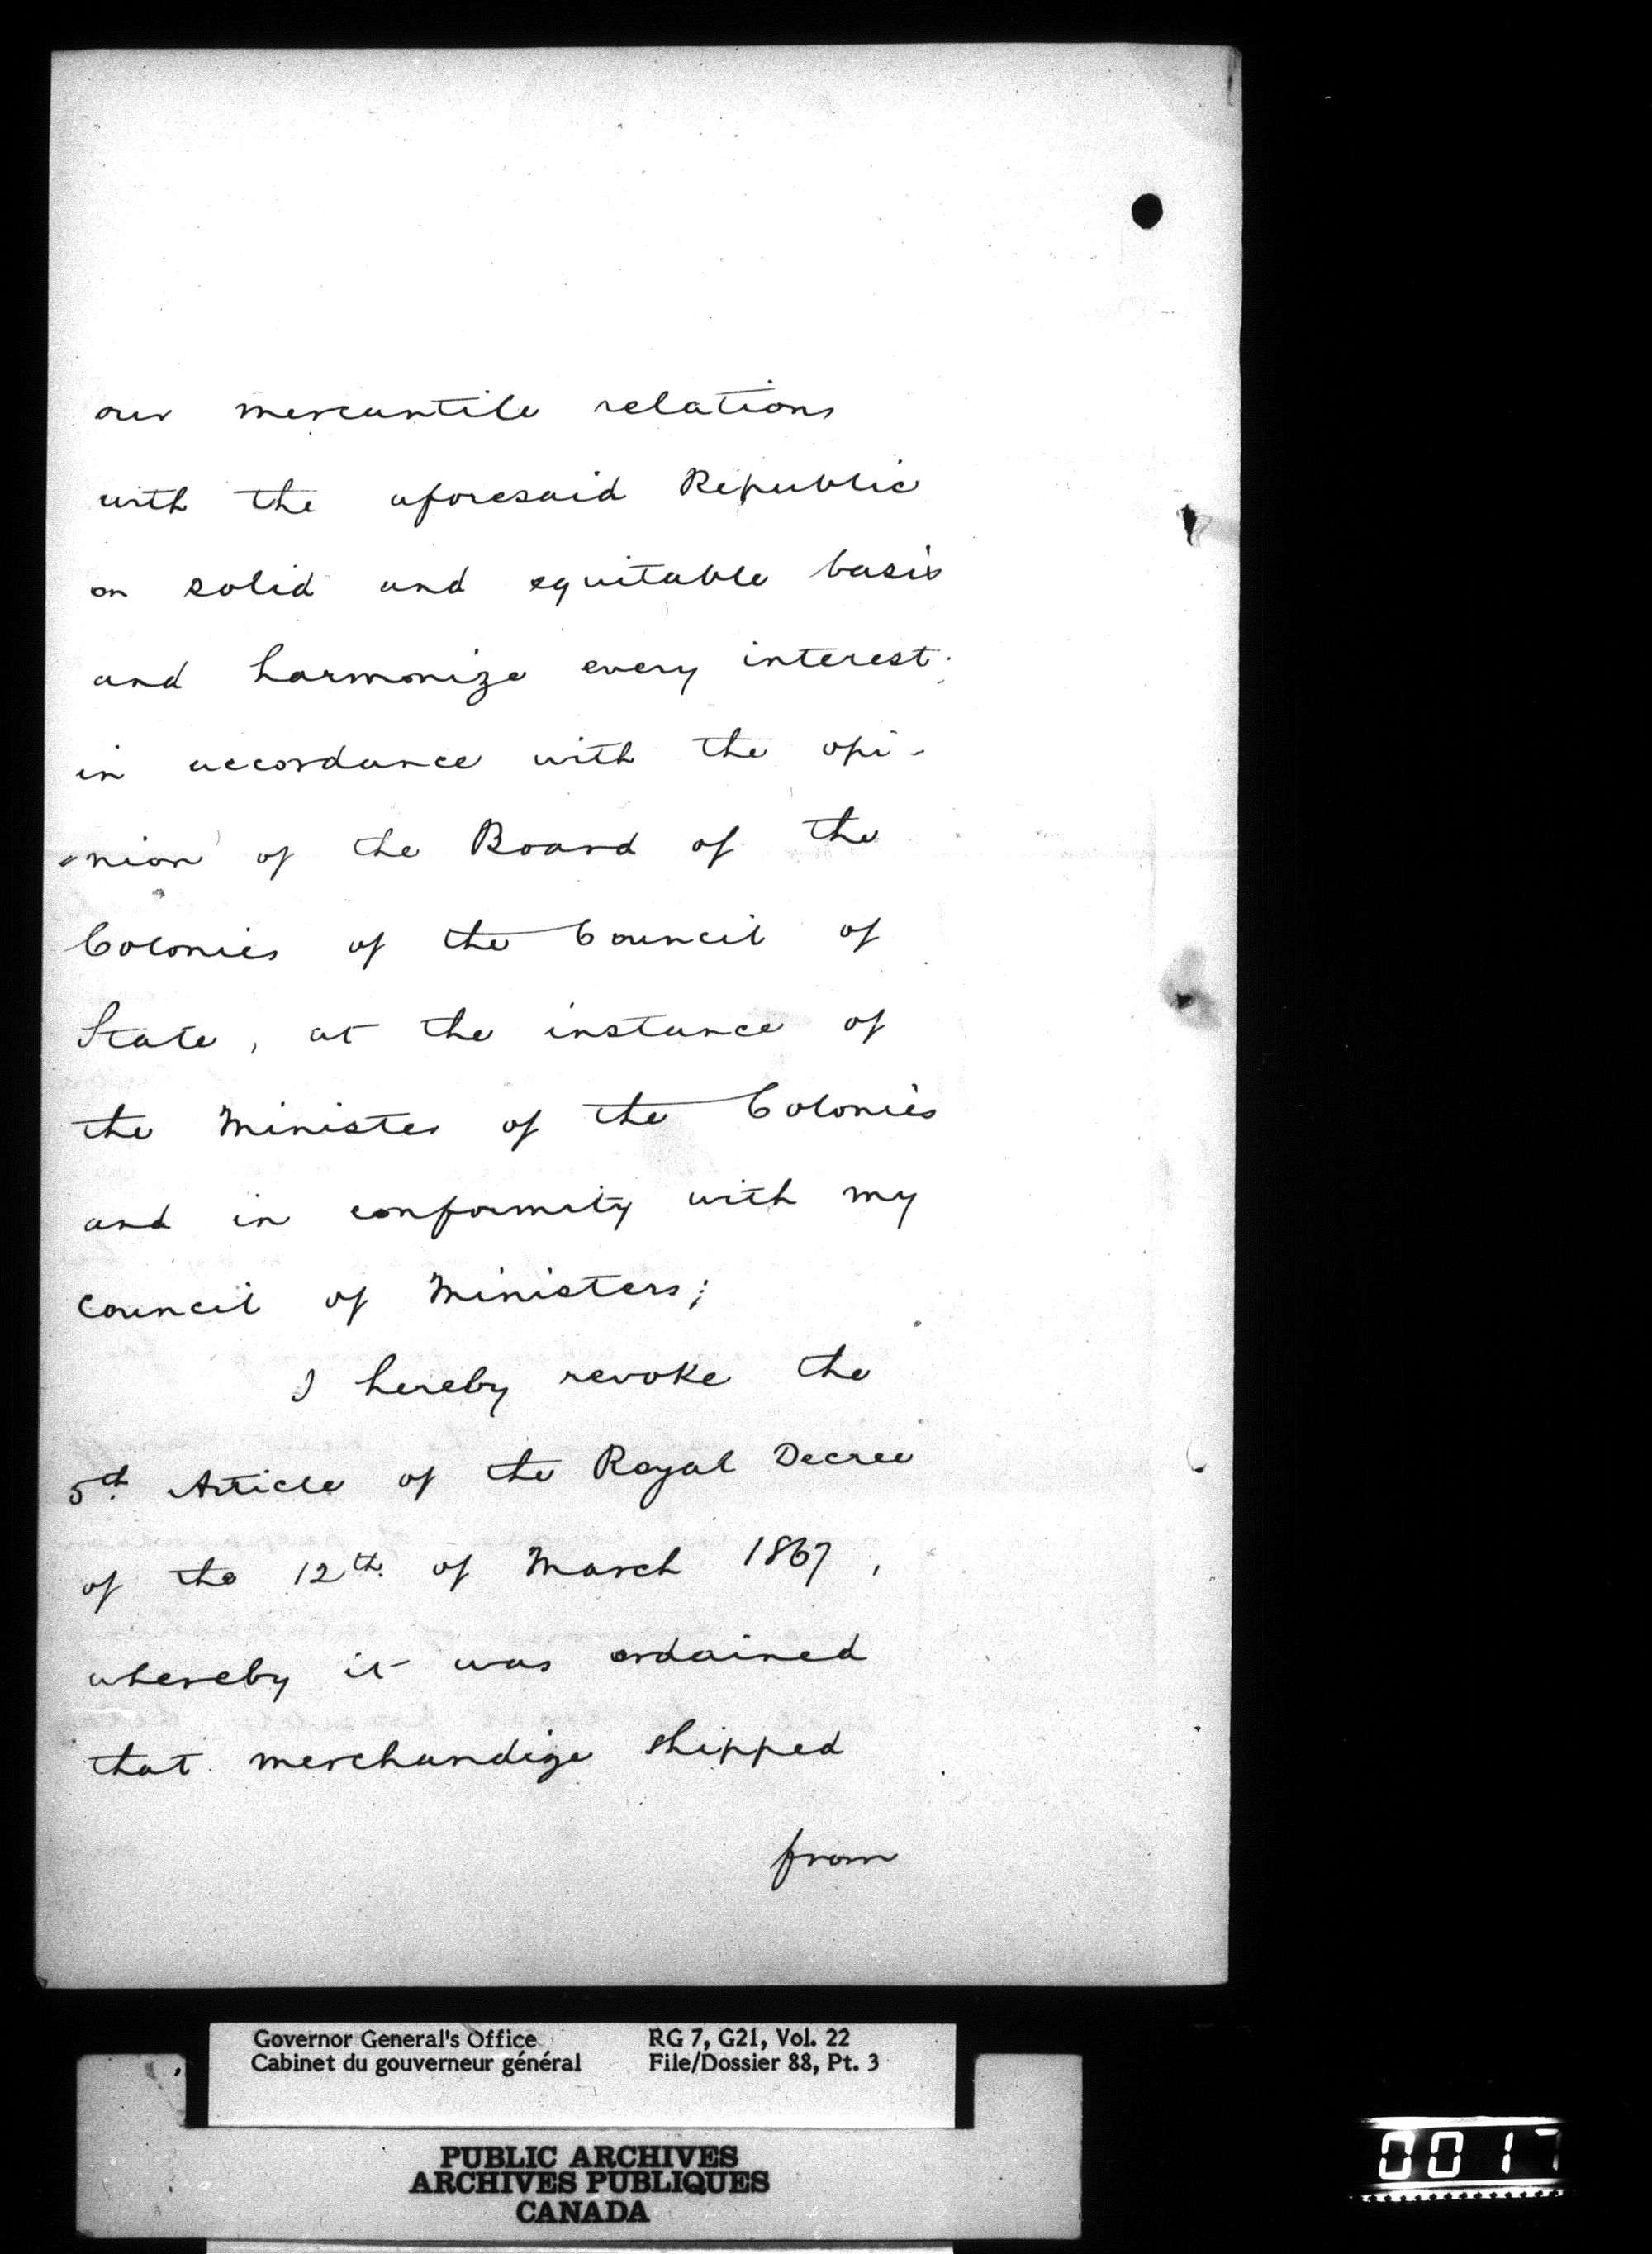 our mercantile relations
with the aforesaid Republic
on solid and equitable basis
and harmonize every interest;
in accordance with the opi-
nion of the Board of the
Colonies of the Council of
State, at the instance of
the Minister of the Colonies
and in conformity with my
Council of Ministers;
I hereby revoke the
5th Article of the Royal Decree
of the 12th of March 1867,
whereby it was ordained
that merchandize shipped
from
Governor General's Office RG 7, G21, Vol. 22
Cabinet du gouverneur général File/Dossier 88, Pt. 3
PUBLIC ARCHIVES
ARCHIVES PUBLIQUES
CANADA
0017